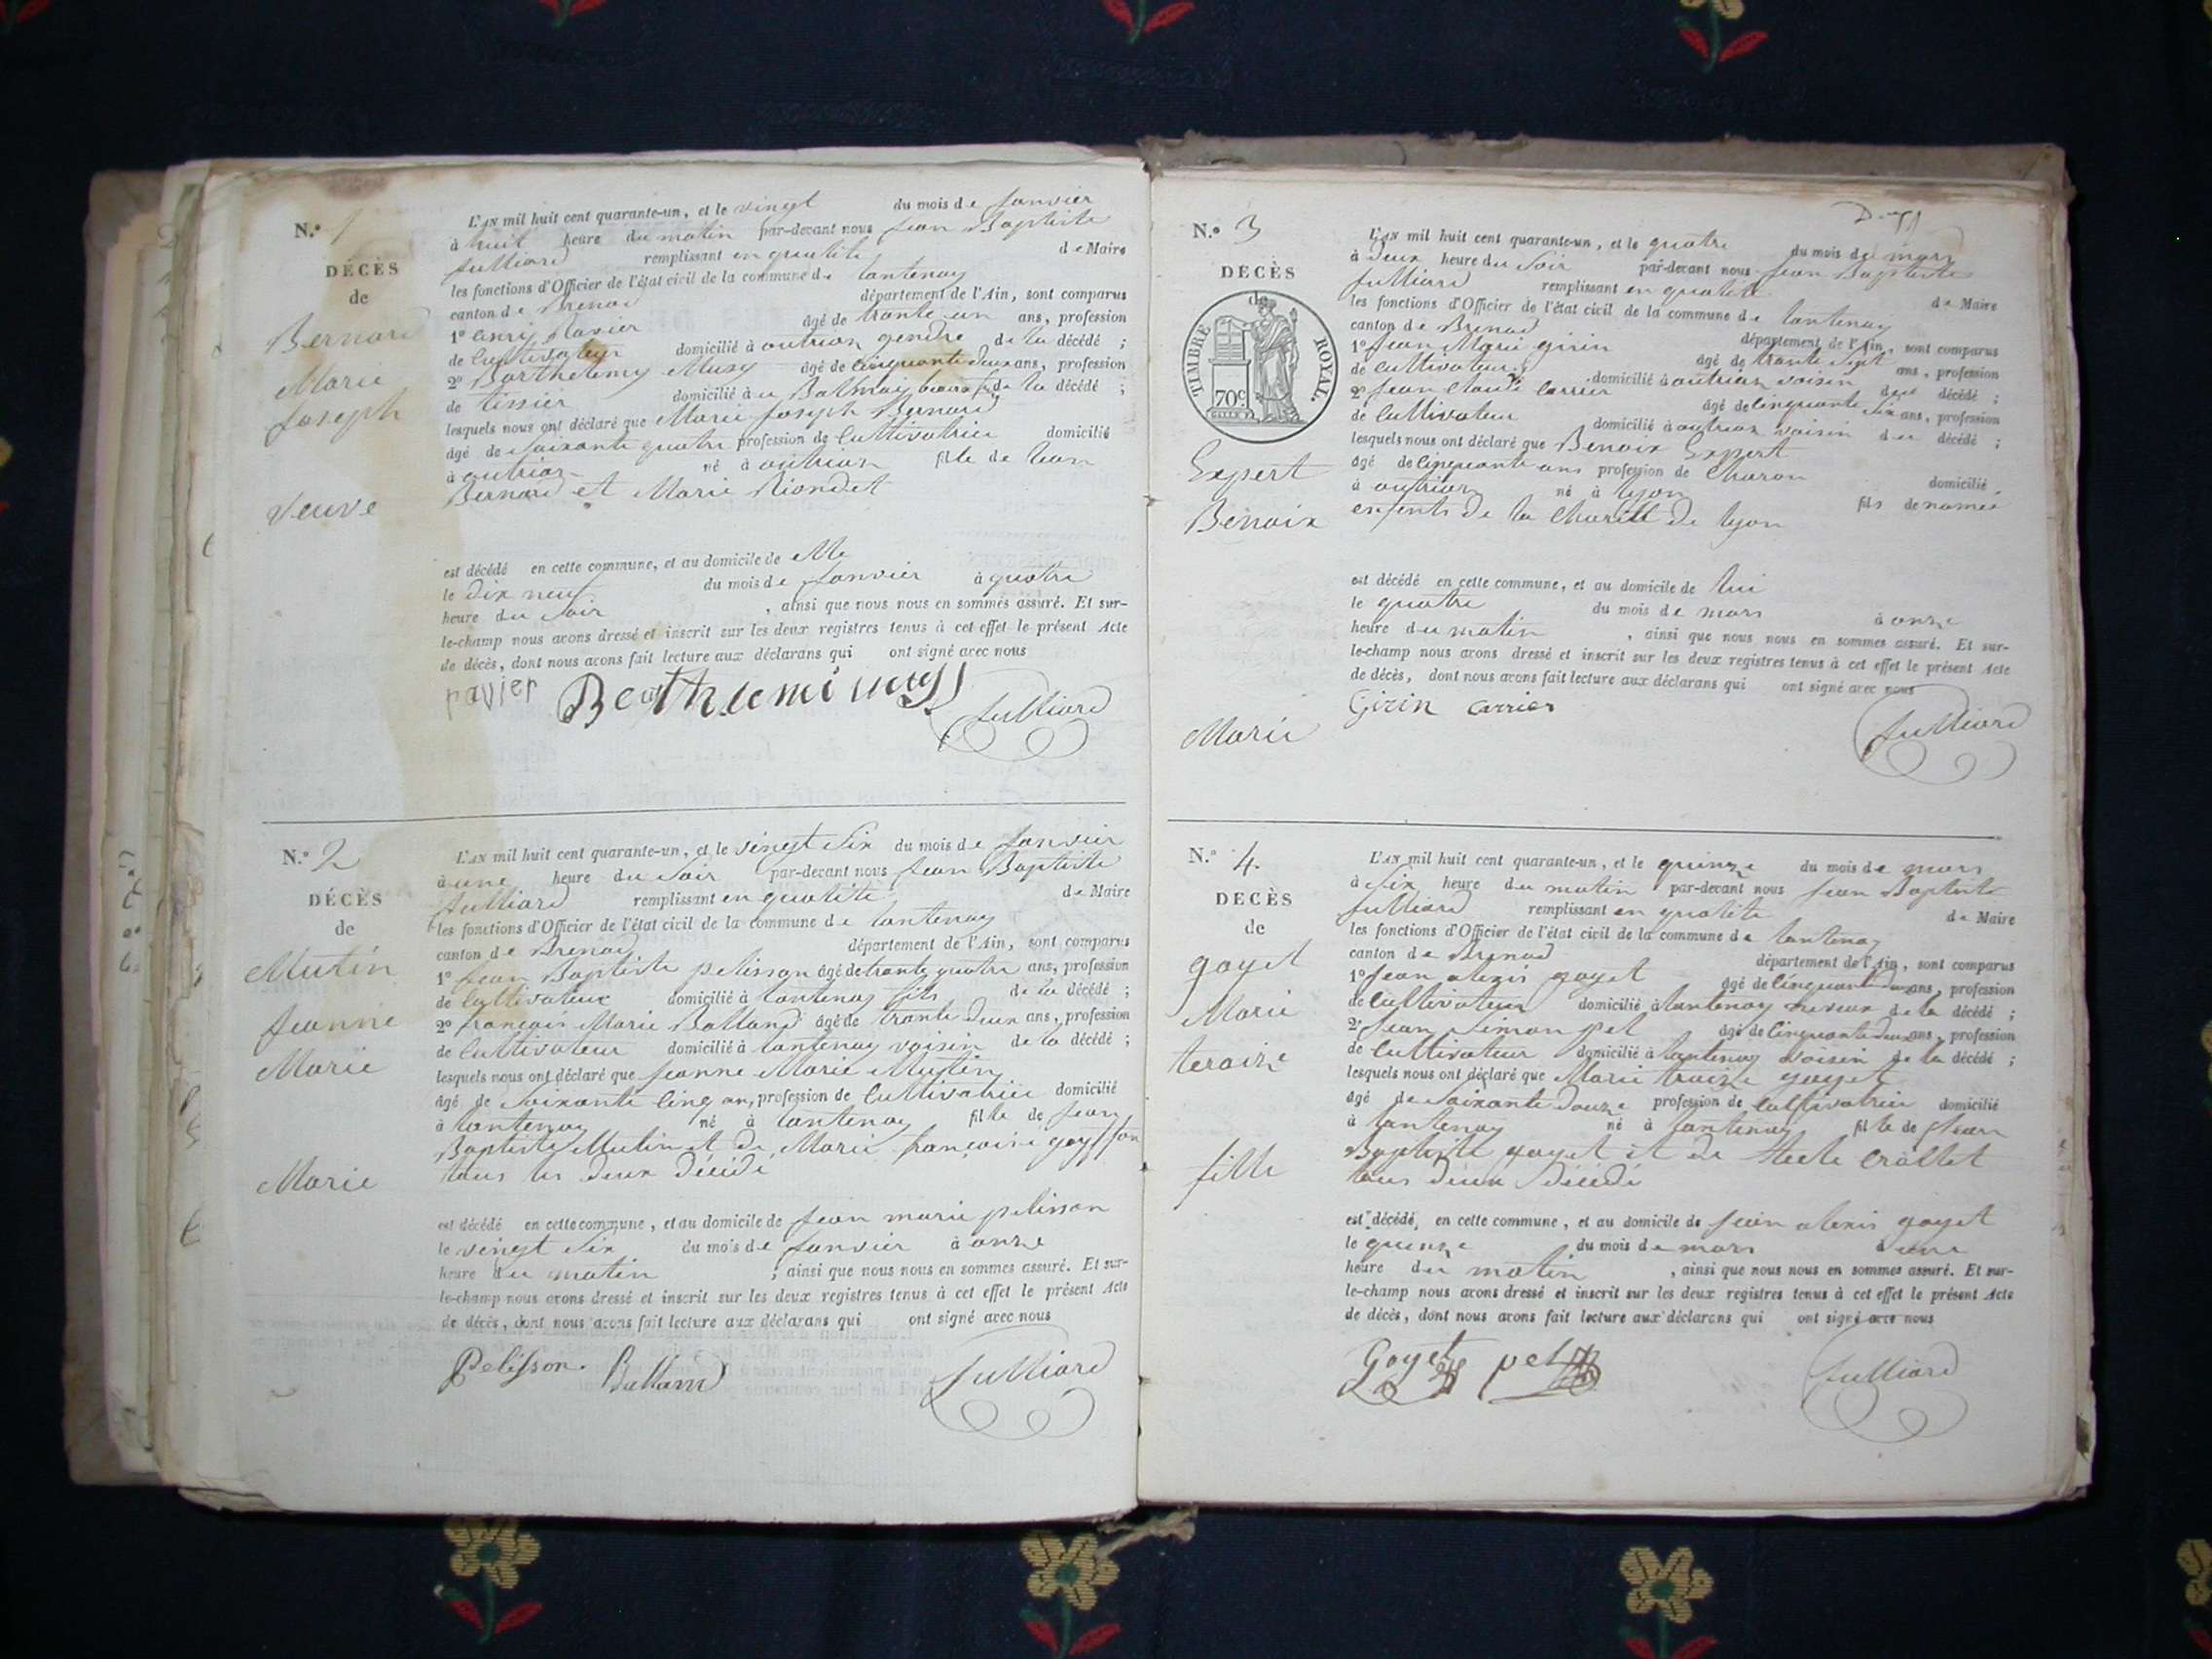 N.º 1
DÉCÈS
de
Bernard
Marie
Joseph
Veuve
L'AN mil huit cent quarante-un, et le vingt du mois de Janvier
à huit heure du matin par-devant nous Jean Baptiste
Julliard remplissant en qualité de Maire
les fonctions d'Officier de l'état civil de la commune de Lantenay
canton de Brenod département de l'Ain, sont comparus
1º ravier âgé de trante un ans, profession
de Cultivateur domicilié à outriaz gendre de la décédé ;
2º Barthelemy Musy âgé de Cinquante deux ans, profession
de tissier domicilié à de la décédé ;
lesquels nous ont déclaré que Marie Joseph Bernard
âgé de Soixante quatre profession de Cultivatrice domicilié
à outriaz né à outriaz fille de
Bernard et Marie Riondet
est décédé en cette commune, et au domicile de elle
le dix neuf du mois de Janvier à quatre
heure du Soir , ainsi que nous nous en sommes assuré. Et sur-
le-champ nous avons dressé et inscrit sur les deux registres tenus à cet effet le présent Acte
de décès, dont nous avons fait lecture aux déclarans qui ont signé avec nous
ravier Julliard
N.º 2
DÉCÈS
de
Mutin
Jeanne
Marie
Marie
L'AN mil huit cent quarante-un, et le vingt Six du mois de Janvier
à une heure du Soir par-devant nous Jean Baptiste
Julliard remplissant en qualité de Maire
les fonctions d'Officier de l'état civil de la commune de Lantenay
canton de Brenod département de l'Ain, sont comparus
1º Jean Baptiste pelisson âgé de trante quatre ans, profession
de Cultivateur domicilié à Lantenay fils de la décédé ;
2º françois Marie Balland âgé de trante deux ans, profession
de Cultivateur domicilié à Lantenay voisin de la décédé ;
lesquels nous ont déclaré que Jeanne Marie Mutin
âgé de Soixante Cinq an, profession de Cultivatrice domicilié
à Lantenay né à Lantenay fille de Jean
Baptiste Mutin et de Marie françoise
tous les deux décédé
est décédé en cette commune, et au domicile de Jean marie pelisson
le vingt Six du mois de Janvier à onze
heure du matin ; ainsi que nous nous en sommes assuré. Et sur-
le-champ nous avons dressé et inscrit sur les deux registres tenus à cet effet le présent Acte
de décès, dont nous avons fait lecture aux déclarans qui ont signé avec nous
Pelisson. Balland Julliard
N.º 3
DÉCÈS
de
TIMBRE ROYAL.
70c
Expert
Benoix
Marié
L'AN mil huit cent quarante-un, et le quatre du mois de mars
à deux heure du Soir par-devant nous Jean Baptiste
Julliard remplissant en qualité de Maire
les fonctions d'Officier de l'état civil de la commune de Lantenay
canton de Brenod département de l'Ain, sont comparus
1º Jean Marie girin âgé de trante Sept ans, profession
de Cultivateur domicilié à outriaz voisin du décédé ;
2º Jean Claude Carrier âgé de Cinquante Six ans, profession
de Cultivateur domicilié à outriaz voisin du décédé ;
lesquels nous ont déclaré que Benoix Expert
âgé de Cinquante ans profession de Charon domicilié
à outriaz né à Lyon fils de
enfents de la Charité de Lyon
est décédé en cette commune, et au domicile de lui
le quatre du mois de mars à onze
heure du matin , ainsi que nous nous en sommes assuré. Et sur-
le-champ nous avons dressé et inscrit sur les deux registres tenus à cet effet le présent Acte
de décès, dont nous avons fait lecture aux déclarans qui ont signé avec nous
Girin carrier Julliard
N.º 4.
DÉCÈS
de
goyet
Marie
teraize
fille
L'AN mil huit cent quarante-un, et le quinze du mois de mars
à Six heure du matin par-devant nous Jean Baptiste
Julliard remplissant en qualité de Maire
les fonctions d'Officier de l'état civil de la commune de Lantenay
canton de Brenod département de l'Ain, sont comparus
1º Jean alexis goyet âgé de Cinquante ans, profession
de Cultivateur domicilié à Lantenay neveux de la décédé ;
2º Jean Simon pet âgé de Cinquante deux ans, profession
de Cultivateur domicilié à Lantenay voisin de la décédé ;
lesquels nous ont déclaré que Marie goyet
âgé de Soixante douze profession de Cultivatrice domicilié
à Lantenay né à Lantenay fille de Jean
Baptiste goyet et de
tous deux décédé
est décédé, en cette commune, et au domicile de Jean alexis goyet
le quinze du mois de mars à une
heure du matin , ainsi que nous nous en sommes assuré. Et sur-
le-champ nous avons dressé et inscrit sur les deux registres tenus à cet effet le présent Acte
de décès, dont nous avons fait lecture aux déclarans qui ont signé avec nous
Goyet pet Julliard